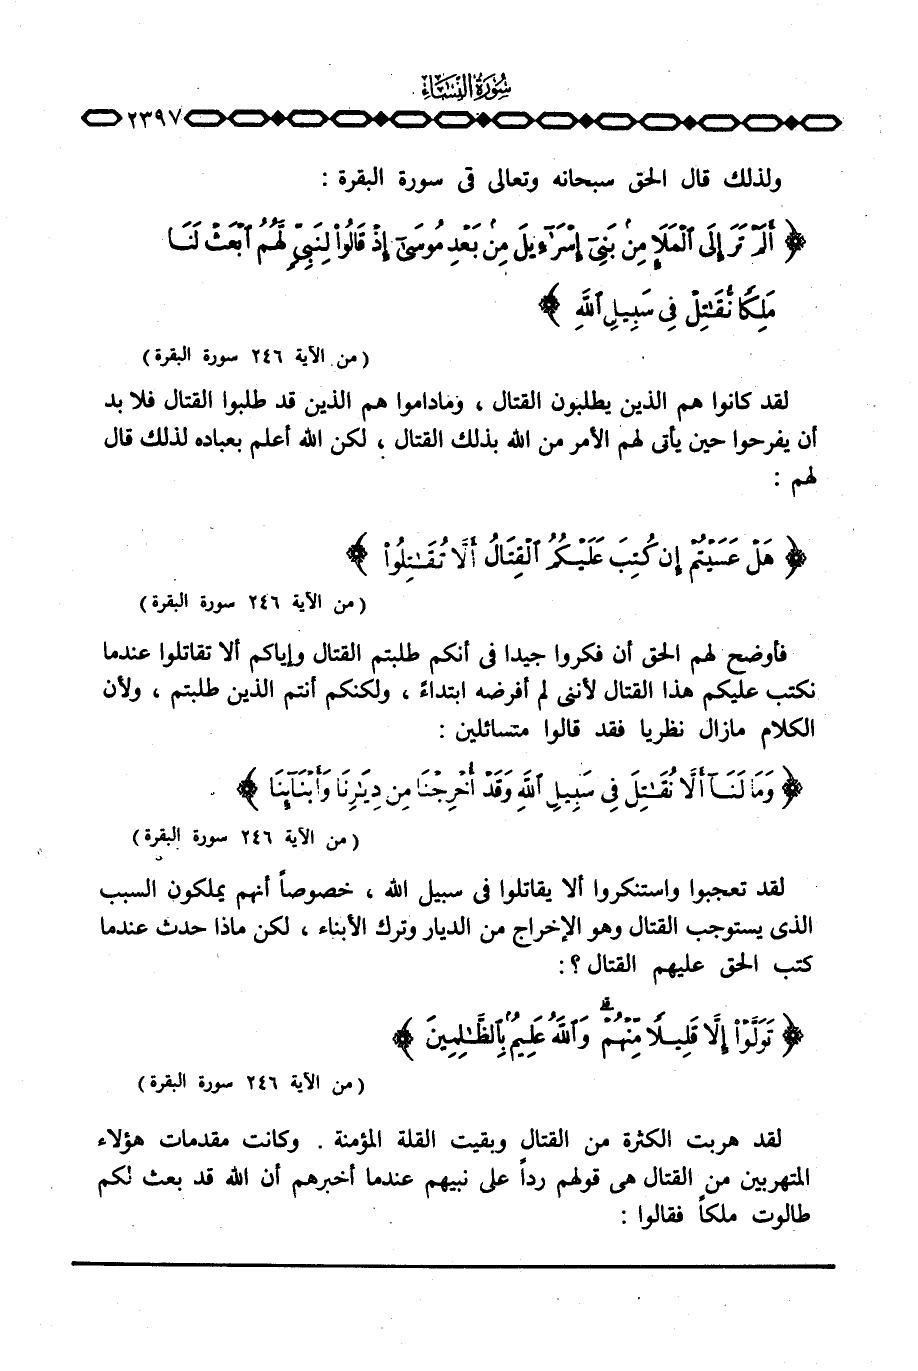 سُورَةُ النِّسَاءِ
٢٣٩٧
ولذلك قال الحق سبحانه وتعالى فى سورة البقرة :
﴿ أَلَمْ تَرَ إِلَى ٱلْمَلَإِ مِنۢ بَنِىٓ إِسْرَٰٓءِيلَ مِنۢ بَعْدِ مُوسَىٰٓ إِذْ قَالُوا۟ لِنَبِىٍّ لَّهُمُ ٱبْعَثْ لَنَا
مَلِكًا نُّقَٰتِلْ فِى سَبِيلِ ٱللَّهِ ﴾
( من الآية ٢٤٦ سورة البقرة )
لقد كانوا هم الذين يطلبون القتال ، وماداموا هم الذين قد طلبوا القتال فلا بد
أن يفرحوا حين يأتى لهم الأمر من الله بذلك القتال ، لكن الله أعلم بعباده لذلك قال
لهم :
﴿ هَلْ عَسَيْتُمْ إِن كُتِبَ عَلَيْكُمُ ٱلْقِتَالُ أَلَّا تُقَٰتِلُوا۟ ﴾
( من الآية ٢٤٦ سورة البقرة )
فأوضح لهم الحق أن فكروا جيدا فى أنكم طلبتم القتال وإياكم ألا تقاتلوا عندما
نكتب عليكم هذا القتال لأننى لم أفرضه ابتداءً ، ولكنكم أنتم الذين طلبتم ، ولأن
الكلام مازال نظريا فقد قالوا متسائلين :
﴿ وَمَا لَنَآ أَلَّا نُقَٰتِلَ فِى سَبِيلِ ٱللَّهِ وَقَدْ أُخْرِجْنَا مِن دِيَٰرِنَا وَأَبْنَآئِنَا ﴾
( من الآية ٢٤٦ سورة البقرة )
لقد تعجبوا واستنكروا ألا يقاتلوا فى سبيل الله ، خصوصاً أنهم يملكون السبب
الذى يستوجب القتال وهو الإخراج من الديار وترك الأبناء ، لكن ماذا حدث عندما
كتب الحق عليهم القتال ؟ :
﴿ تَوَلَّوْا۟ إِلَّا قَلِيلًا مِّنْهُمْ ۗ وَٱللَّهُ عَلِيمٌۢ بِٱلظَّٰلِمِينَ ﴾
( من الآية ٢٤٦ سورة البقرة )
لقد هربت الكثرة من القتال وبقيت القلة المؤمنة . وكانت مقدمات هؤلاء
المتهربين من القتال هى قولهم رداً على نبيهم عندما أخبرهم أن الله قد بعث لكم
طالوت ملكاً فقالوا :